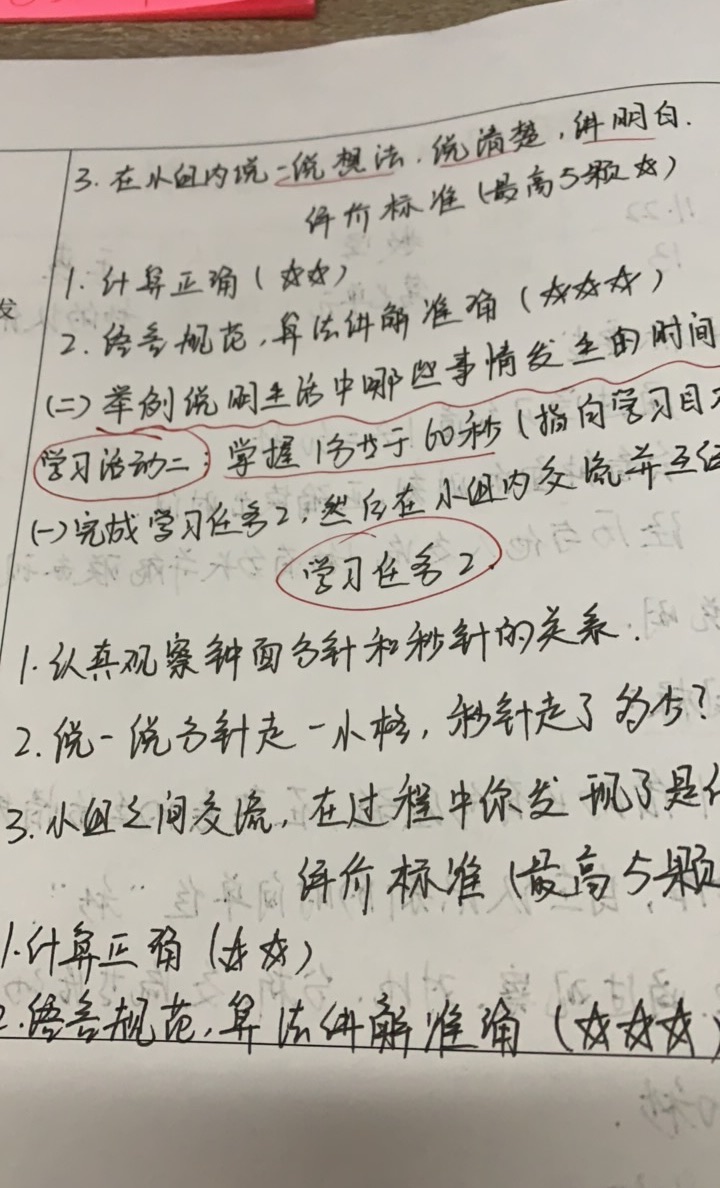 3. 在小组内说一说想法,说清楚,讲明白.
评价标准(最高5颗☆)
1. 计算正确(☆☆)
发
2. 语言规范,算法讲解准确(☆☆☆)
(二)举例说明生活中哪些事情发生的时间
学习活动二:掌握1分=60秒(指向学习目
(一)完成学习任务2,然后在小组内交流并互
学习任务2.
1. 认真观察钟面分针和秒针的关系.
2. 说一说分针走一小格,秒针走了多少?
3. 小组之间交流,在过程中你发现了是
评价标准(最高5颗
1. 计算正确(☆☆)
2. 语言规范,算法讲解准确(☆☆☆)